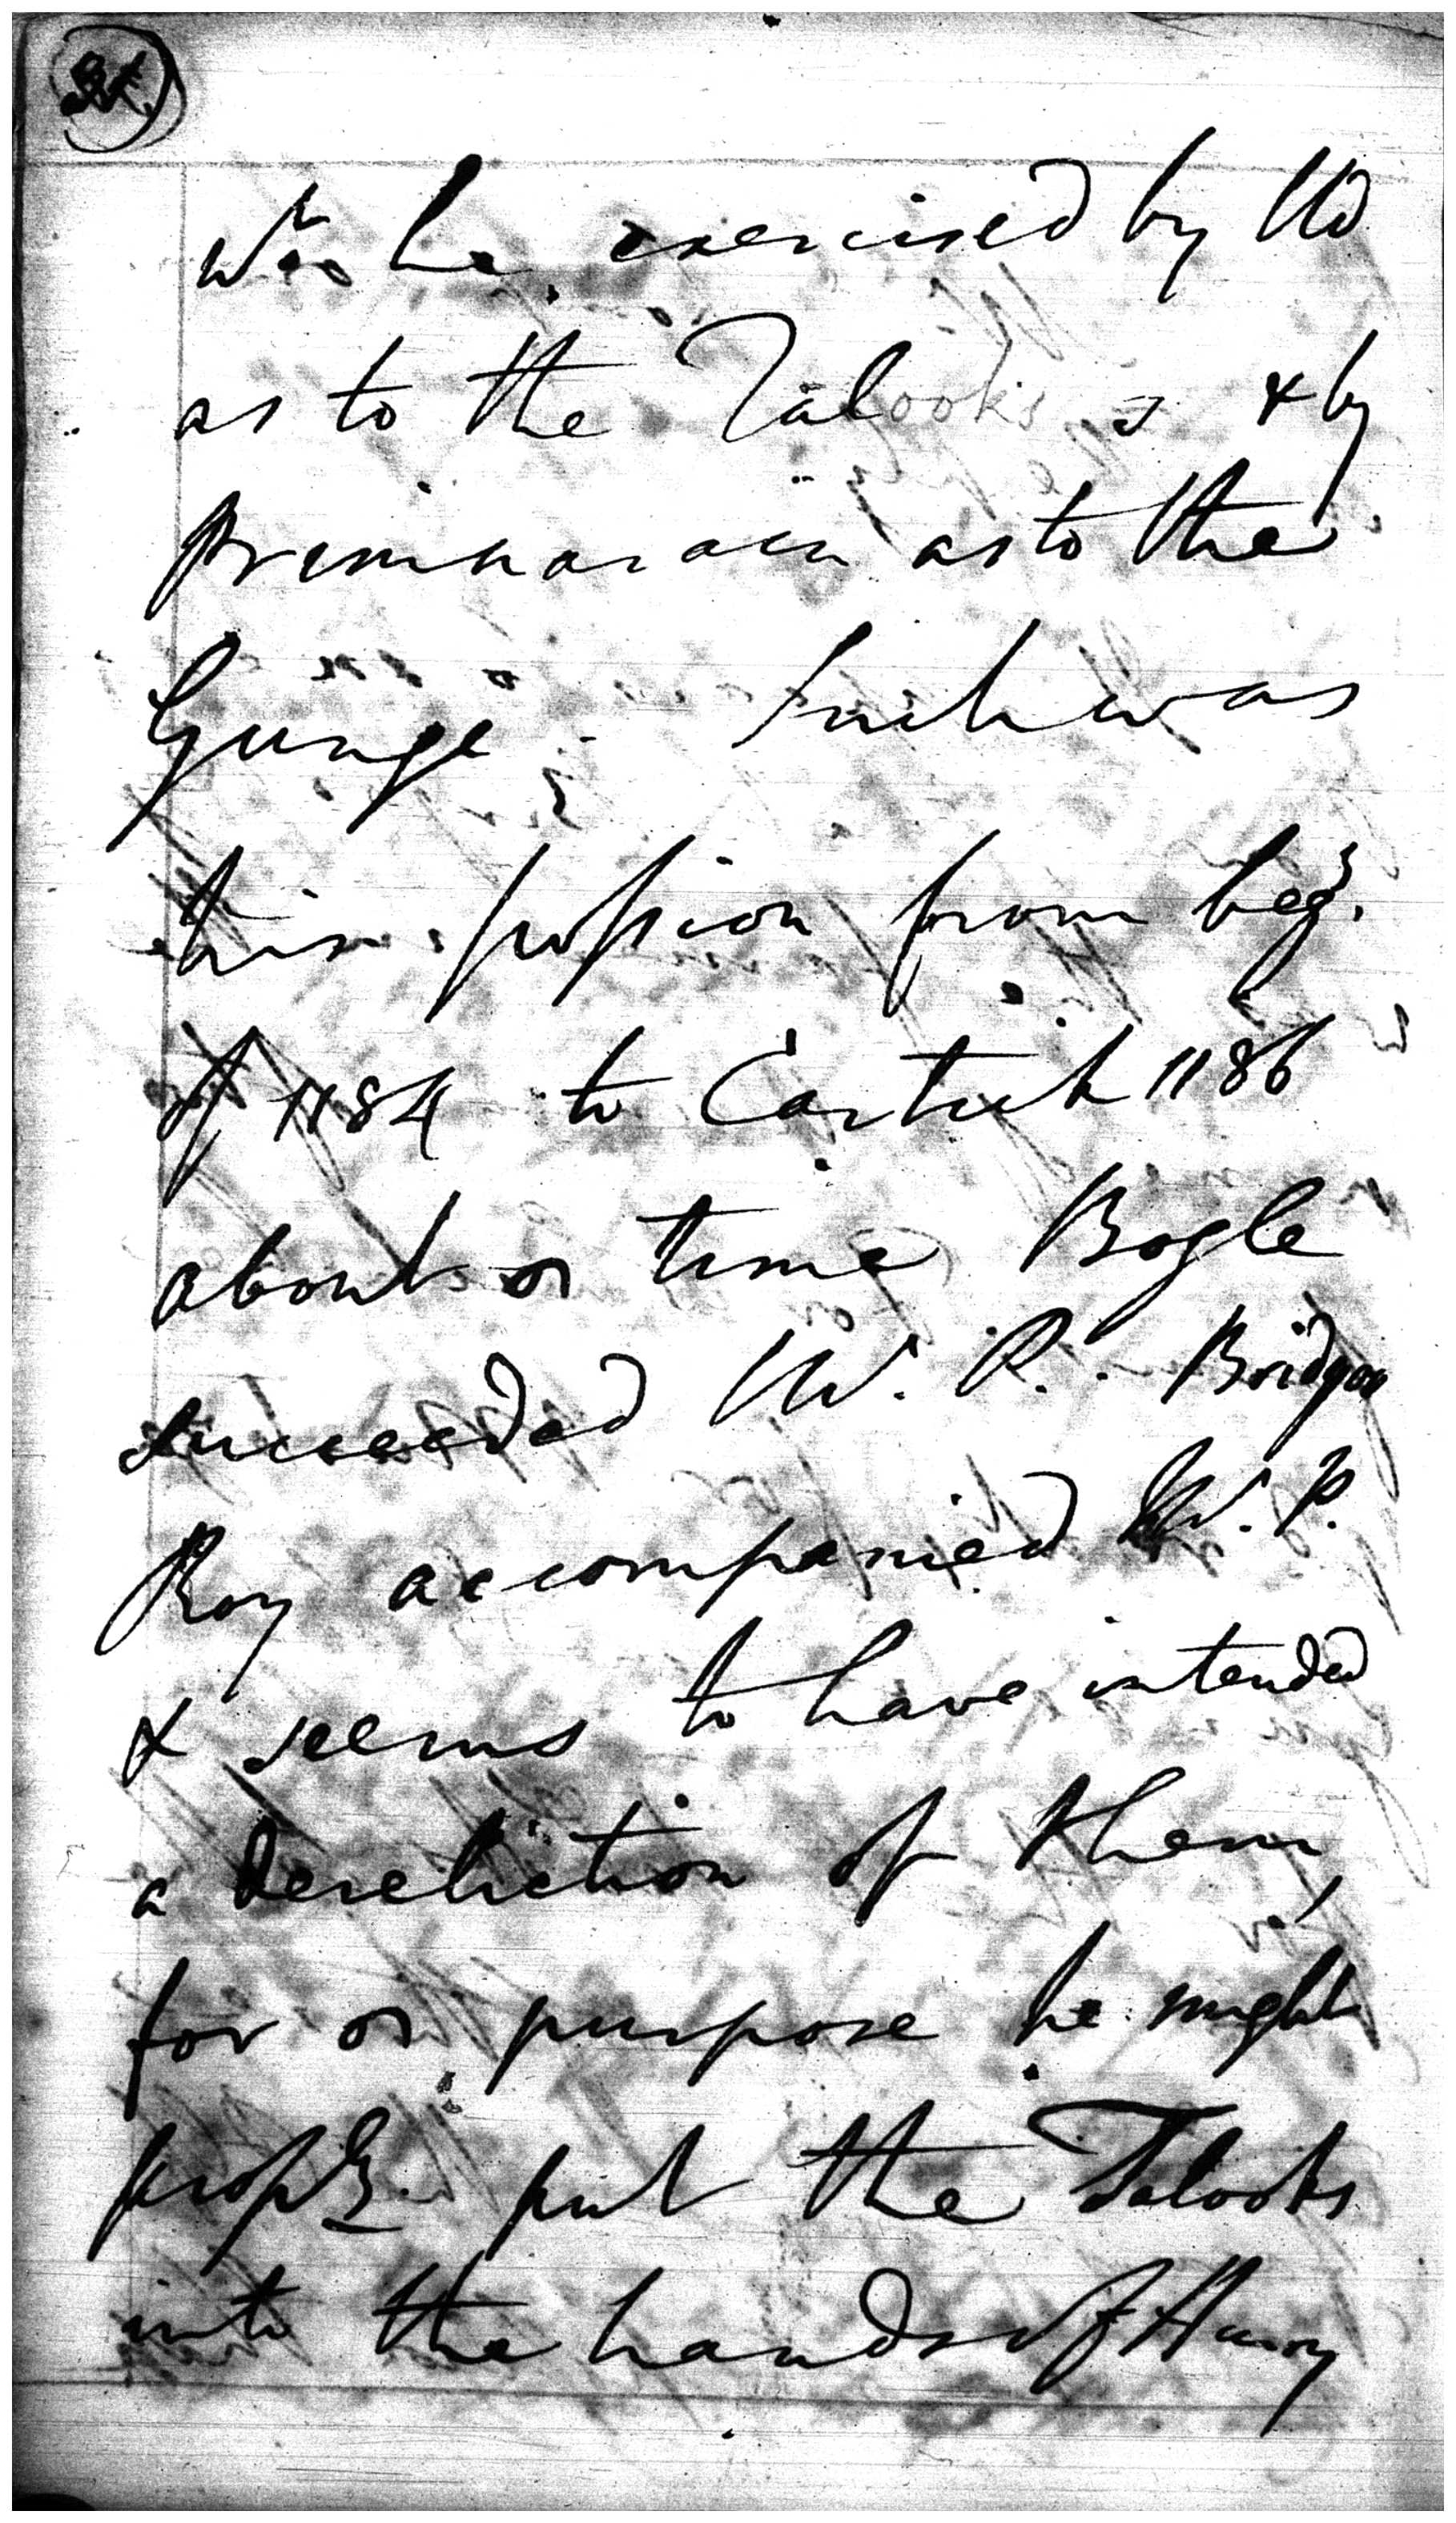 he exercised by
as to the Talooks & by
Preminarain as to the
Gunge. Such was
his possion from beg.
of 1184 to Cartick 1186
about time Bogle
succeeded W. P. Bridgoo
Roy accompanied W. P.
& seems to have intended
a dereliction of them,
for purpose he might
put the Talooks
into the hands of Hurry